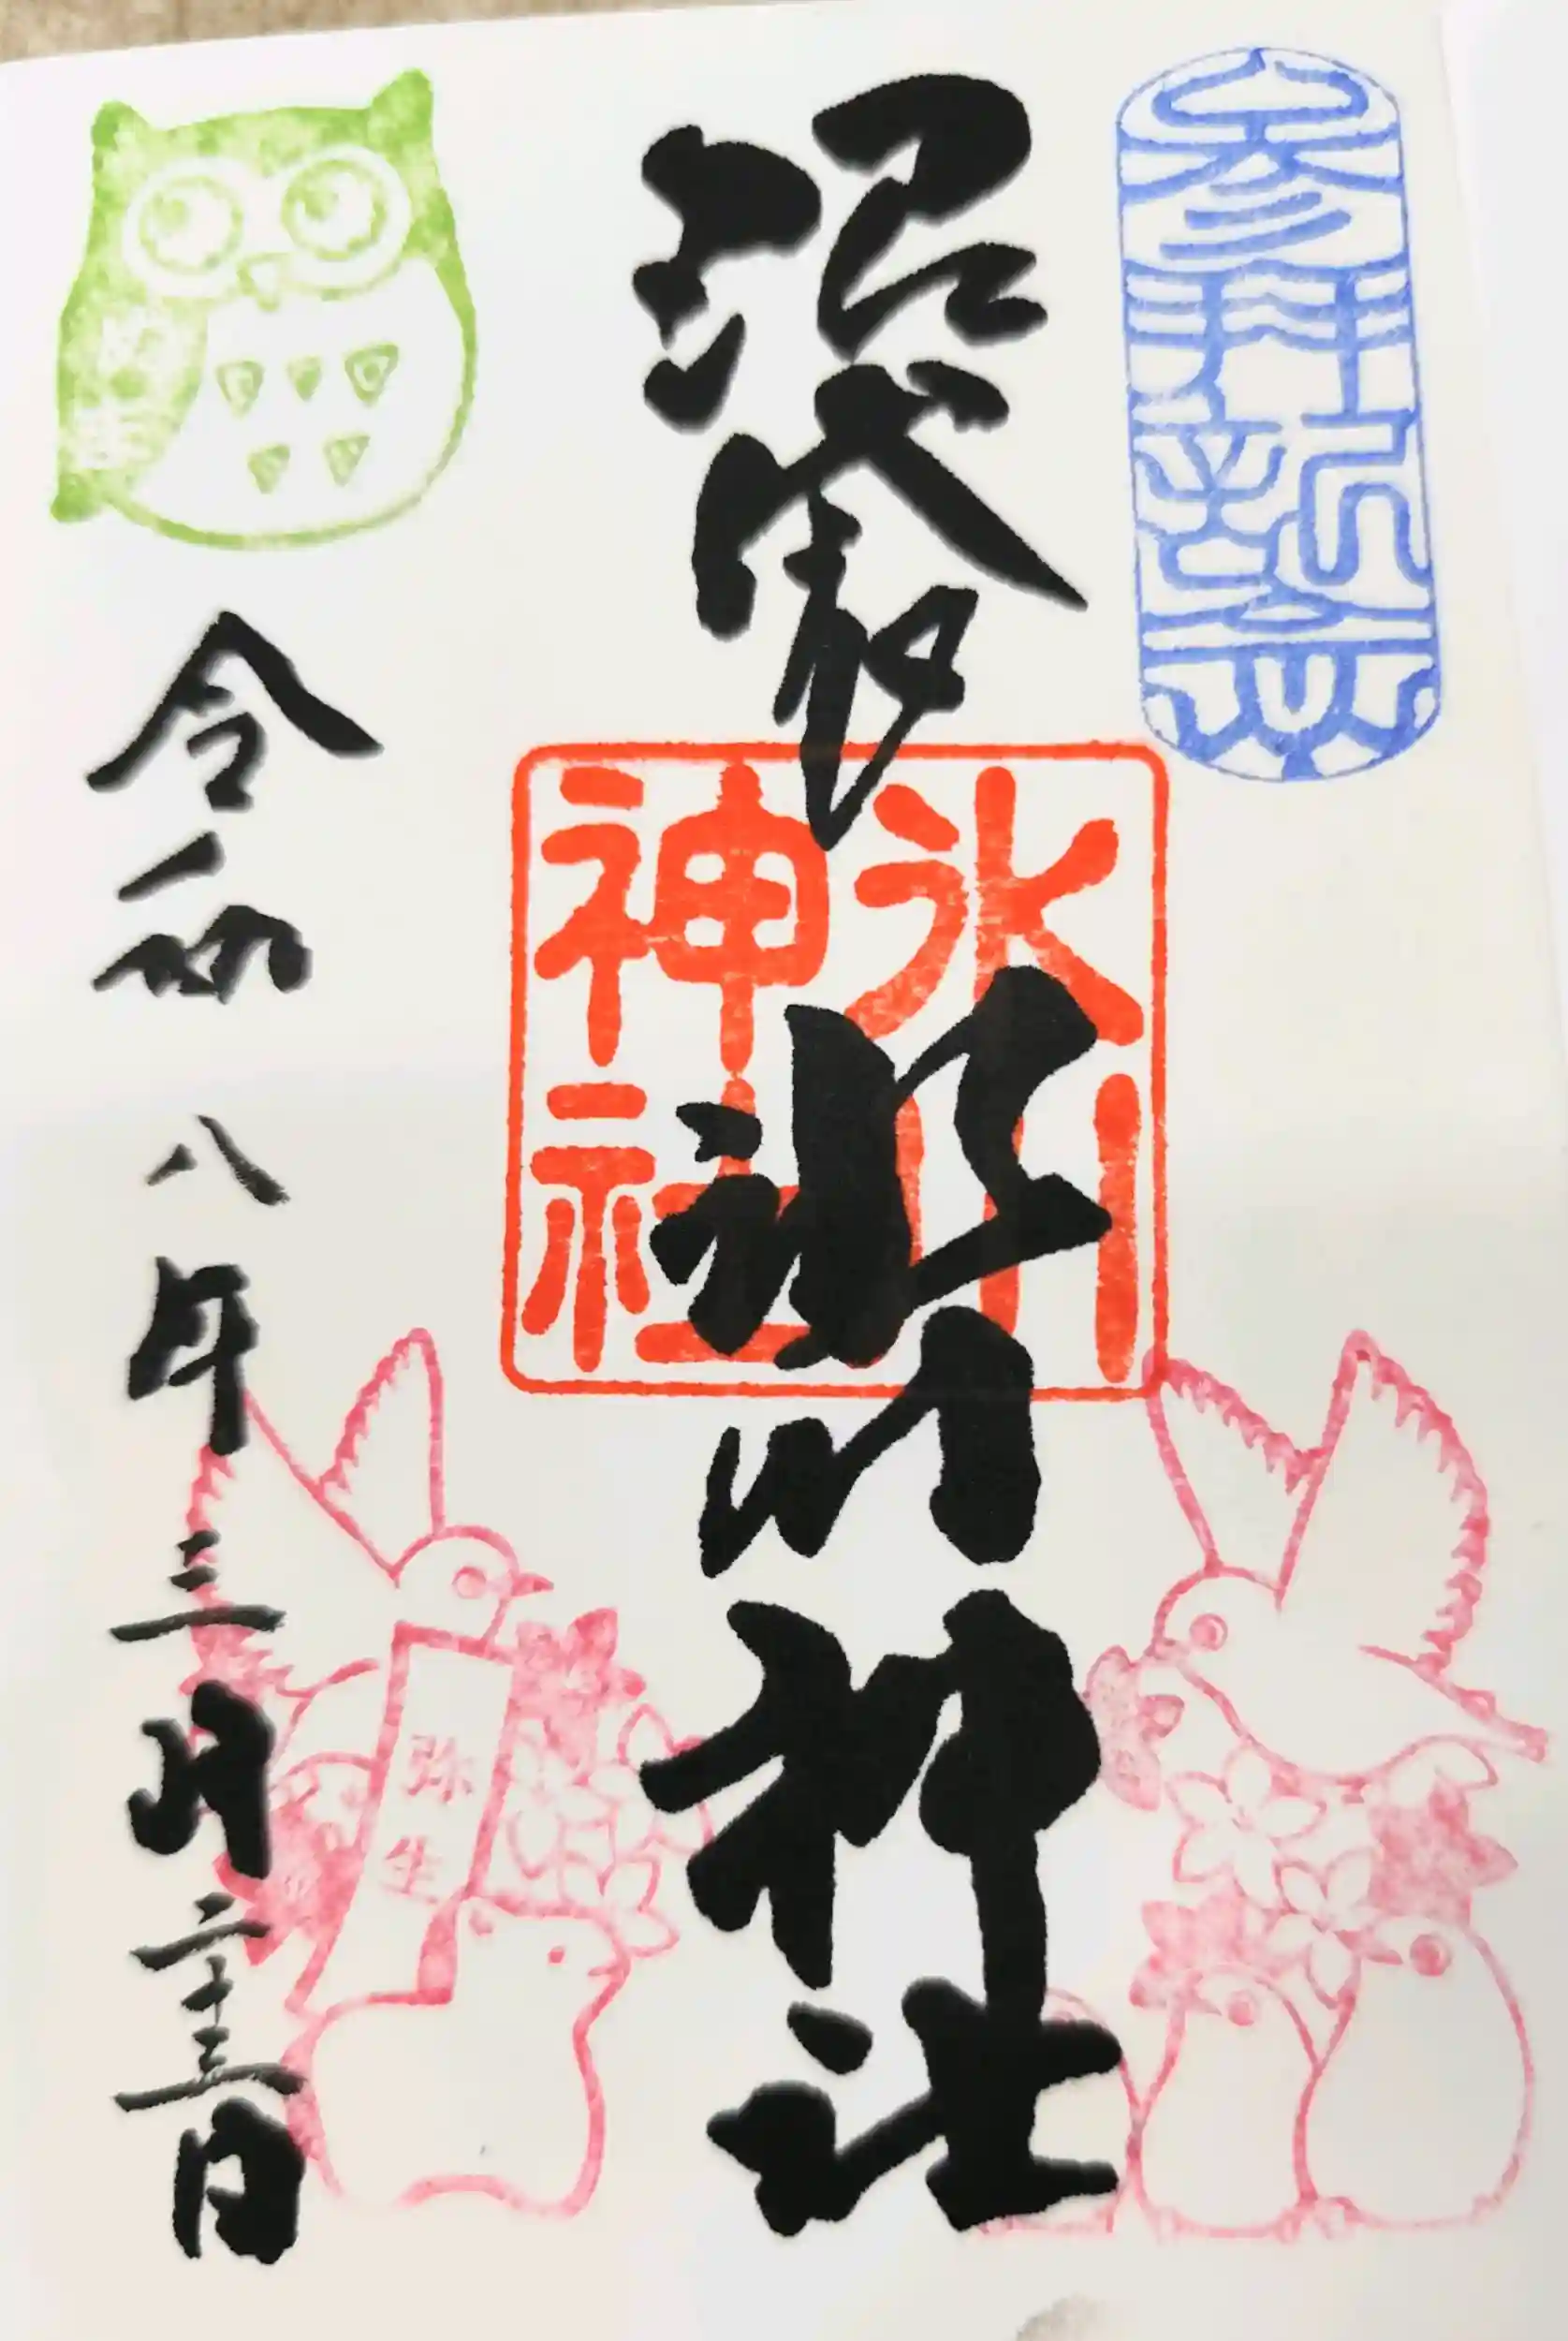 参拝祈念
沼袋氷川神社
氷川
神社
令和八年三月二十三日
弥生